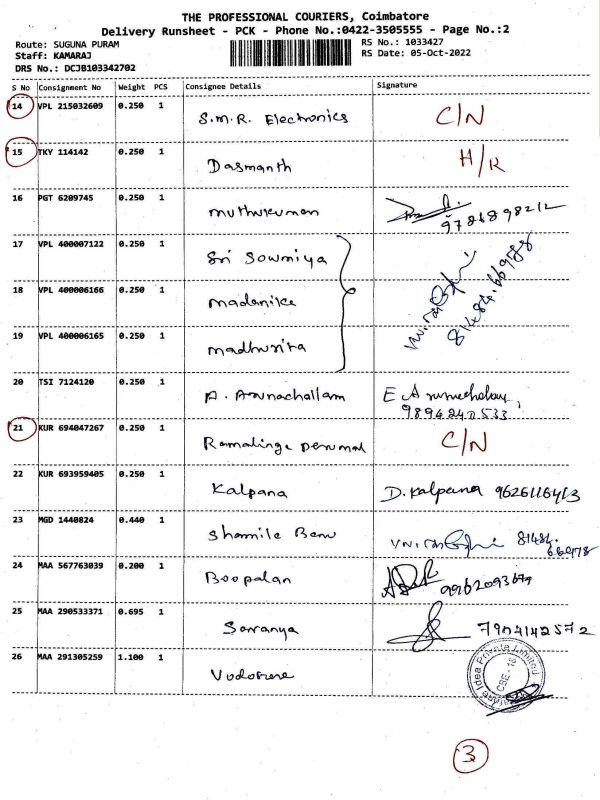 THE PROFESSIONAL COURIERS, Coimbatore
Delivery Runsheet - PCK - Phone No.:0422-3505555 - Page No.:2
Route: SUGUNA PURAM
Staff: KAMARAJ
DRS No.: DCJB103342702
RS No.: 1033427
RS Date: 05-Oct-2022
S No Consignment No Weight PCS Consignee Details Signature
14 VPL 215032609 0.250 1 S.M.R. Electronics C/N
15 TKY 114142 0.250 1 Dasmanth H/R
16 PGT 6209745 0.250 1 muthukumar
17 VPL 400007122 0.250 1 Sri Sowmiya
18 VPL 400006166 0.250 1 madanike
19 VPL 400006165 0.250 1
20 TSI 7124120 0.250 1 A. Arunachallam E Arunachalam,
9894240533
21 KUR 694047267 0.250 1 Ramalinge perumal C/N
22 KUR 693959405 0.250 1 Kalpana D. Kalpana
23 MGD 1440824 0.440 1 Shamile Banu
24 MAA 567763039 0.200 1 Boopalan
25 MAA 290533371 0.695 1 Saranya 7904142572
26 MAA 291305259 1.100 1
Idea Private Limited
CBE - 18
3